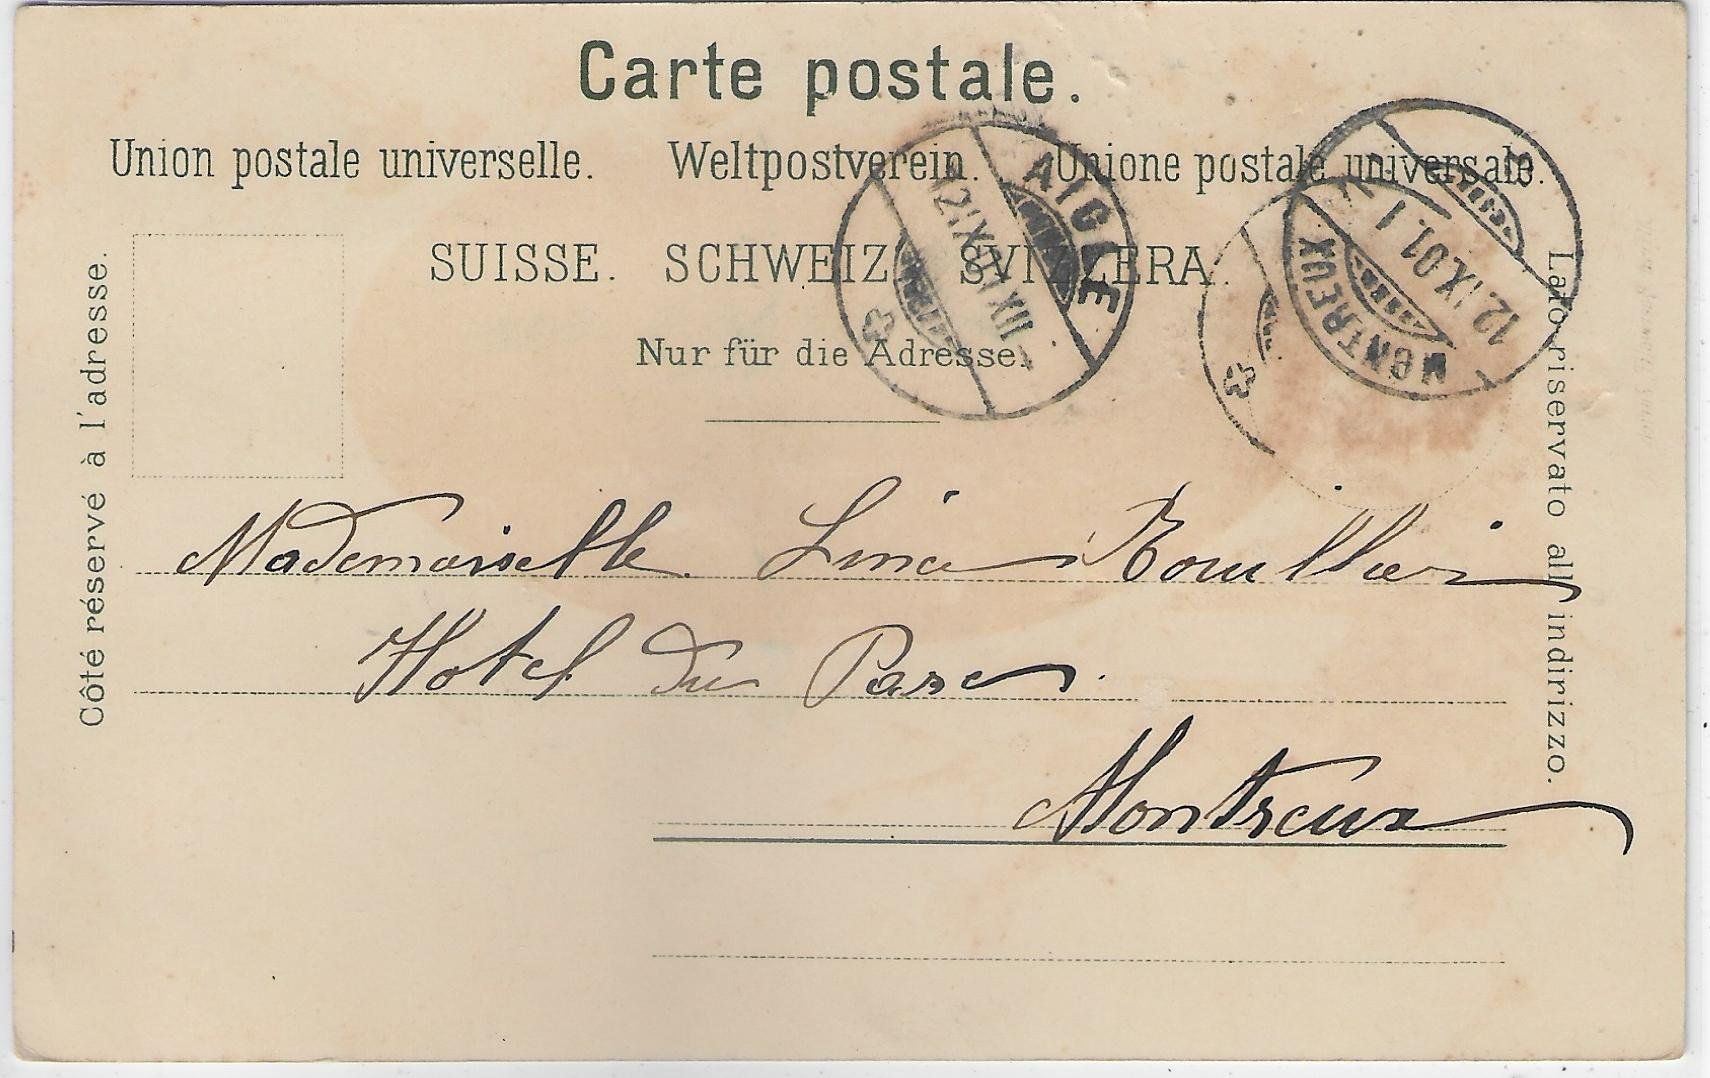 Carte postale.
Union postale universelle. Weltpostverein. Unione postale universale.
SUISSE. SCHWEIZ. SVIZZERA.
Nur für die Adresse.
Côté réservé à l'adresse.
Lato riservato all indirizzo.
AIGLE
MONTREUX
12.IX.01.
Mademoiselle Lina
Hotel du Parc.
Montreux